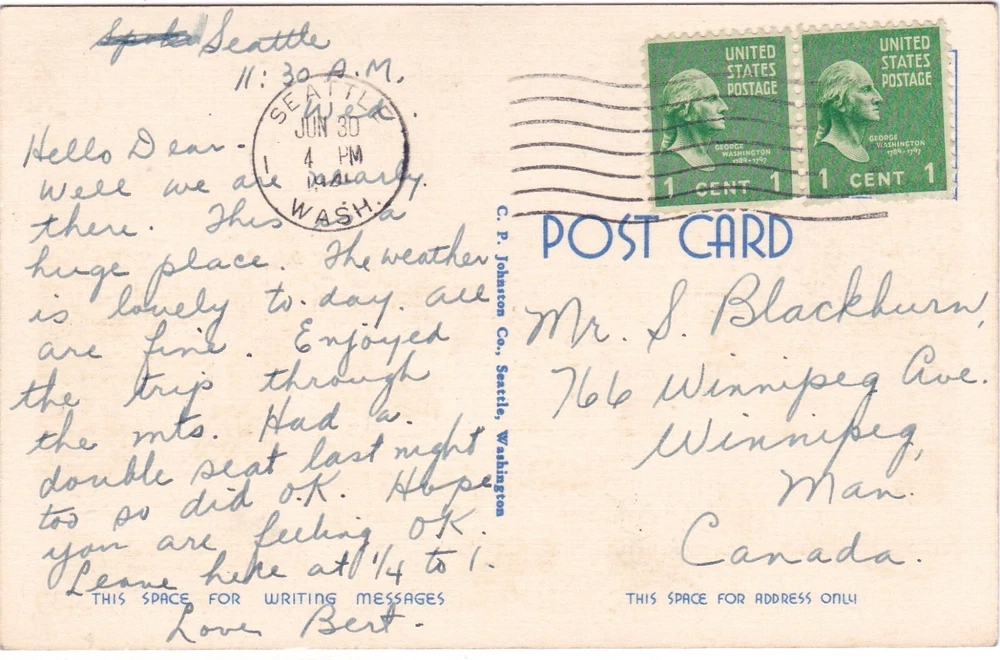 Seattle
11:30 A.M.
Wed.
Hello Dear-
Well we are nearly
there. This a
huge place. The weather
is lovely to-day. All
are fine. Enjoyed
the trip through
the mts. Had a
double seat last night
too so did O.K. Hope
you are feeling OK.
Leave here at 1/4 to 1.
THIS SPACE FOR WRITING MESSAGES
Love Bert-
SEATTLE
JUN 30
4 PM
WASH.
1
C. P. Johnston Co., Seattle, Washington
UNITED
STATES
POSTAGE
GEORGE
WASHINGTON
1789-1797
1 CENT 1
UNITED
STATES
POSTAGE
GEORGE
WASHINGTON
1789-1797
1 CENT 1
POST CARD
Mr. S. Blackburn,
766 Winnipeg Ave.
Winnipeg,
Man.
Canada.
THIS SPACE FOR ADDRESS ONLY